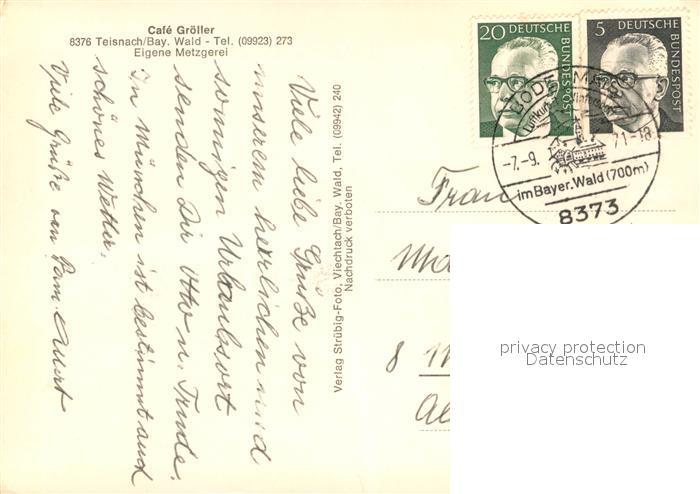 Café Gröller
8376 Teisnach/Bay. Wald - Tel. (09923) 273
Eigene Metzgerei
Viele liebe Grüße von
unserem herrlichen und
sonnigen Urlaubsort
senden Dir Otto u. Trude.
In München ist bestimmt auch
schönes Wetter.
Viele Grüße von Fam.
Verlag Strübig-Foto, Viechtach/Bay. Wald, Tel. (09942) 240
Nachdruck verboten
20 DEUTSCHE BUNDESPOST
5 DEUTSCHE BUNDESPOST
BODENMAIS
-7.-9. 71-18
im Bayer. Wald (700m)
8373
Frau
8
privacy protection
Datenschutz